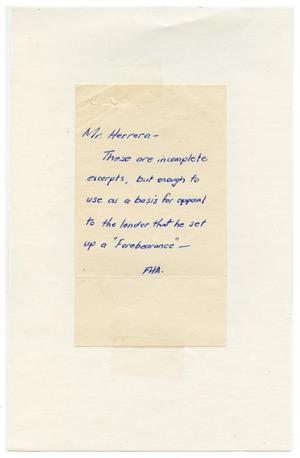 Mr. Herrera–
These are incomplete
excerpts, but enough to
use as a basis for appeal
to the lender that he set
up a "Forebearance"–
FHA.